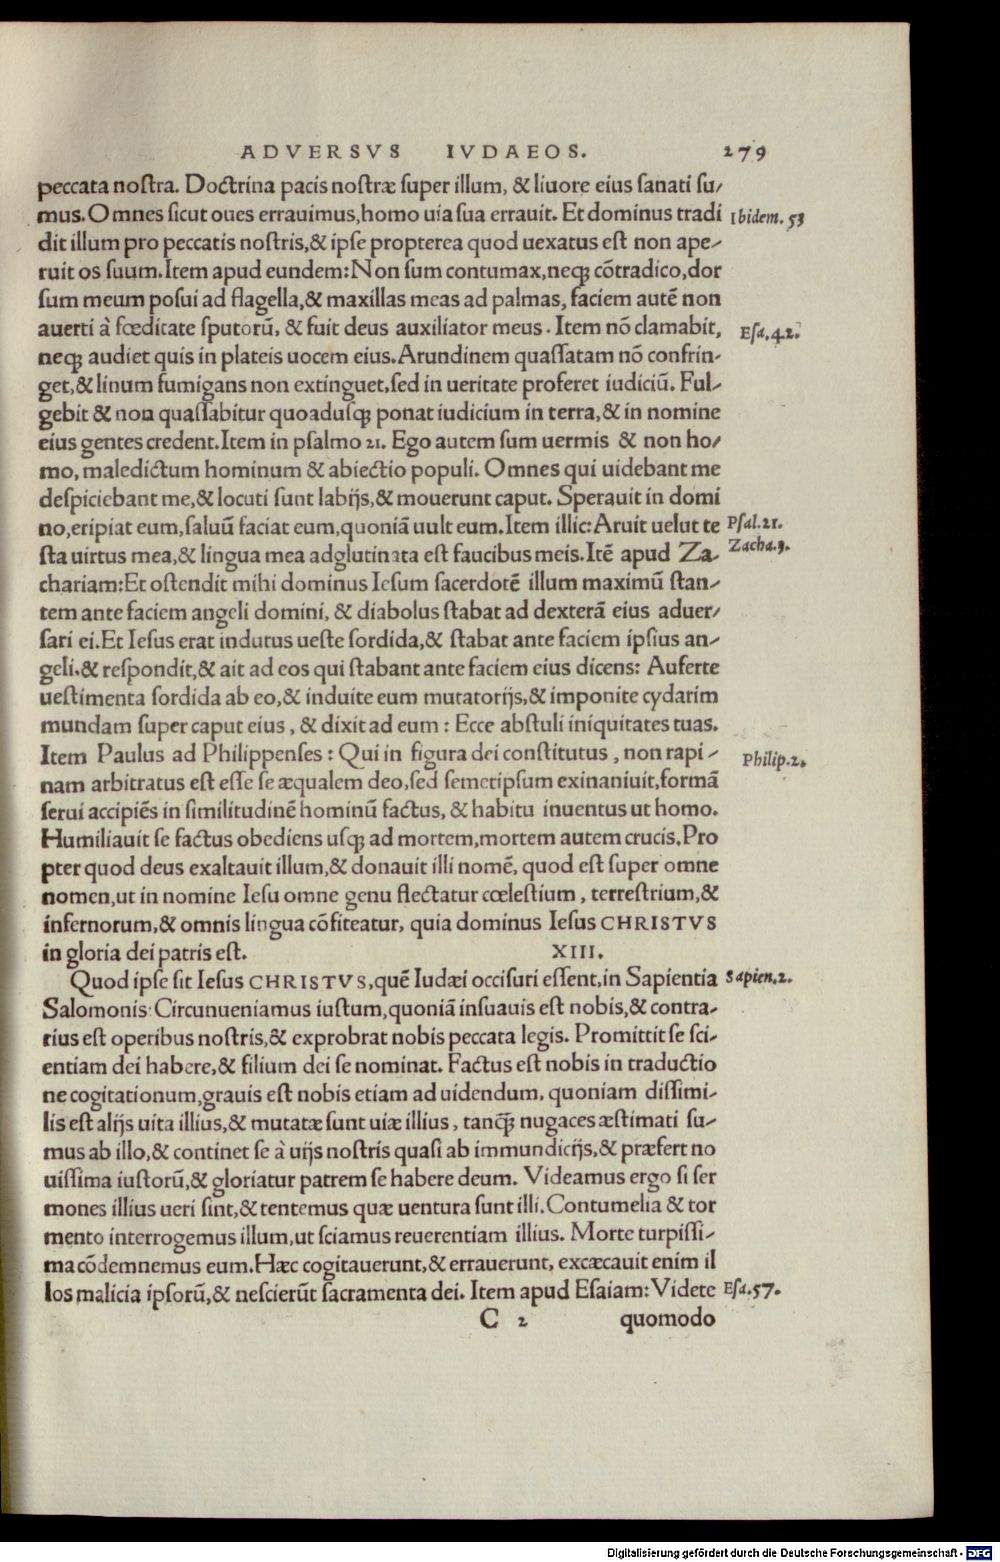 ADVERSVS IVDAEOS. 279
peccata noſtra. Doctrina pacis noſtræ ſuper illum, & liuore eius ſanati ſu/
mus. Omnes ſicut oues errauimus, homo uia ſua errauit. Et dominus tradi Ibidem. 53
dit illum pro peccatis noſtris, & ipſe propterea quod uexatus eſt non ape/
ruit os ſuum. Item apud eundem: Non ſum contumax, neqꝫ cōtradico, dor
ſum meum poſui ad flagella, & maxillas meas ad palmas, faciem autē non
auerti à fœditate ſputorū, & fuit deus auxiliator meus. Item nō clamabit, Eſa. 42.
neqꝫ audiet quis in plateis uocem eius. Arundinem quaſſatam nō confrin/
get, & linum fumigans non extinguet, ſed in ueritate proferet iudiciū. Ful/
gebit & non quaſſabitur quoaduſqꝫ ponat iudicium in terra, & in nomine
eius gentes credent. Item in pſalmo 21. Ego autem ſum uermis & non ho/
mo, maledictum hominum & abiectio populi. Omnes qui uidebant me
deſpiciebant me, & locuti ſunt labijs, & mouerunt caput. Sperauit in domi
no, eripiat eum, ſaluū faciat eum, quoniā uult eum. Item illic: Aruit uelut te Pſal. 21.
ſta uirtus mea, & lingua mea adglutinata eſt faucibus meis. Itē apud Za/ Zacha. 3.
chariam: Et oſtendit mihi dominus Ieſum ſacerdotē illum maximū ſtan/
tem ante faciem angeli domini, & diabolus ſtabat ad dexterā eius aduer/
ſari ei. Et Ieſus erat indutus ueſte ſordida, & ſtabat ante faciem ipſius an/
geli. & reſpondit, & ait ad eos qui ſtabant ante faciem eius dicens: Auferte
ueſtimenta ſordida ab eo, & induite eum mutatorijs, & imponite cydarim
mundam ſuper caput eius, & dixit ad eum: Ecce abſtuli iniquitates tuas.
Item Paulus ad Philippenſes: Qui in figura dei conſtitutus, non rapi/ Philip. 2.
nam arbitratus eſt eſſe ſe æqualem deo, ſed ſemetipſum exinaniuit, formā
ſerui accipiēs in ſimilitudinē hominū factus, & habitu inuentus ut homo.
Humiliauit ſe factus obediens uſqꝫ ad mortem, mortem autem crucis. Pro
pter quod deus exaltauit illum, & donauit illi nomē, quod eſt ſuper omne
nomen, ut in nomine Ieſu omne genu flectatur cœleſtium, terreſtrium, &
infernorum, & omnis lingua cōfiteatur, quia dominus Ieſus CHRISTVS
in gloria dei patris eſt. XIII.
Quod ipſe ſit Ieſus CHRISTVS, quē Iudæi occiſuri eſſent, in Sapientia Sapien. 2.
Salomonis: Circunueniamus iuſtum, quoniā inſuauis eſt nobis, & contra/
rius eſt operibus noſtris, & exprobrat nobis peccata legis. Promittit ſe ſci/
entiam dei habere, & filium dei ſe nominat. Factus eſt nobis in traductio
ne cogitationum, grauis eſt nobis etiam ad uidendum, quoniam diſſimi/
lis eſt alijs uita illius, & mutatæ ſunt uiæ illius, tanqꝫ̄ nugaces æſtimati ſu/
mus ab illo, & continet ſe à uijs noſtris quaſi ab immundicijs, & præfert no
uiſſima iuſtorū, & gloriatur patrem ſe habere deum. Videamus ergo ſi ſer
mones illius ueri ſint, & tentemus quæ uentura ſunt illi. Contumelia & tor
mento interrogemus illum, ut ſciamus reuerentiam illius. Morte turpiſſi/
ma cōdemnemus eum. Hæc cogitauerunt, & errauerunt, excæcauit enim il
los malicia ipſorū, & neſcierūt ſacramenta dei. Item apud Eſaiam: Videte Eſa. 57.
C 2 quomodo
Digitalisierung gefördert durch die Deutsche Forschungsgemeinschaft - DFG